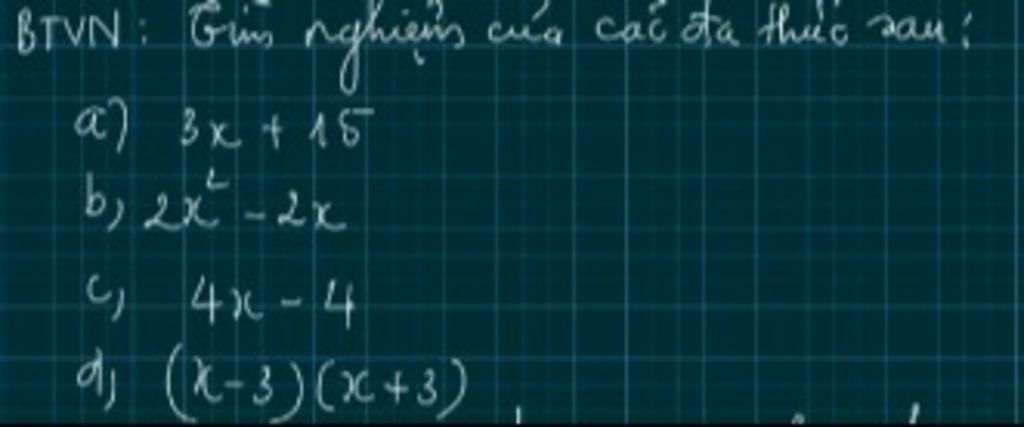 BTVN: Tìm nghiệm của các đa thức sau:
a) 3x + 15
b) 2x² - 2x
c) 4x - 4
d) (x-3)(x+3)